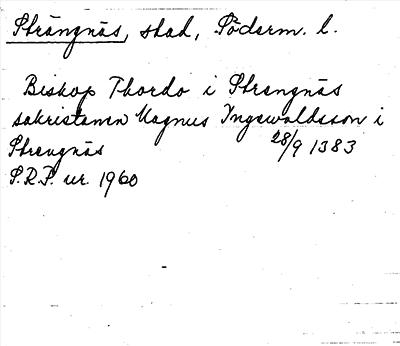 Strängnäs, stad, Söderm. l.
Biskop Thordo i Strengnäs
sakristanen Magnus Ingewaldsson i
Strengnäs 28/9 1383
S.R.P. nr. 1960